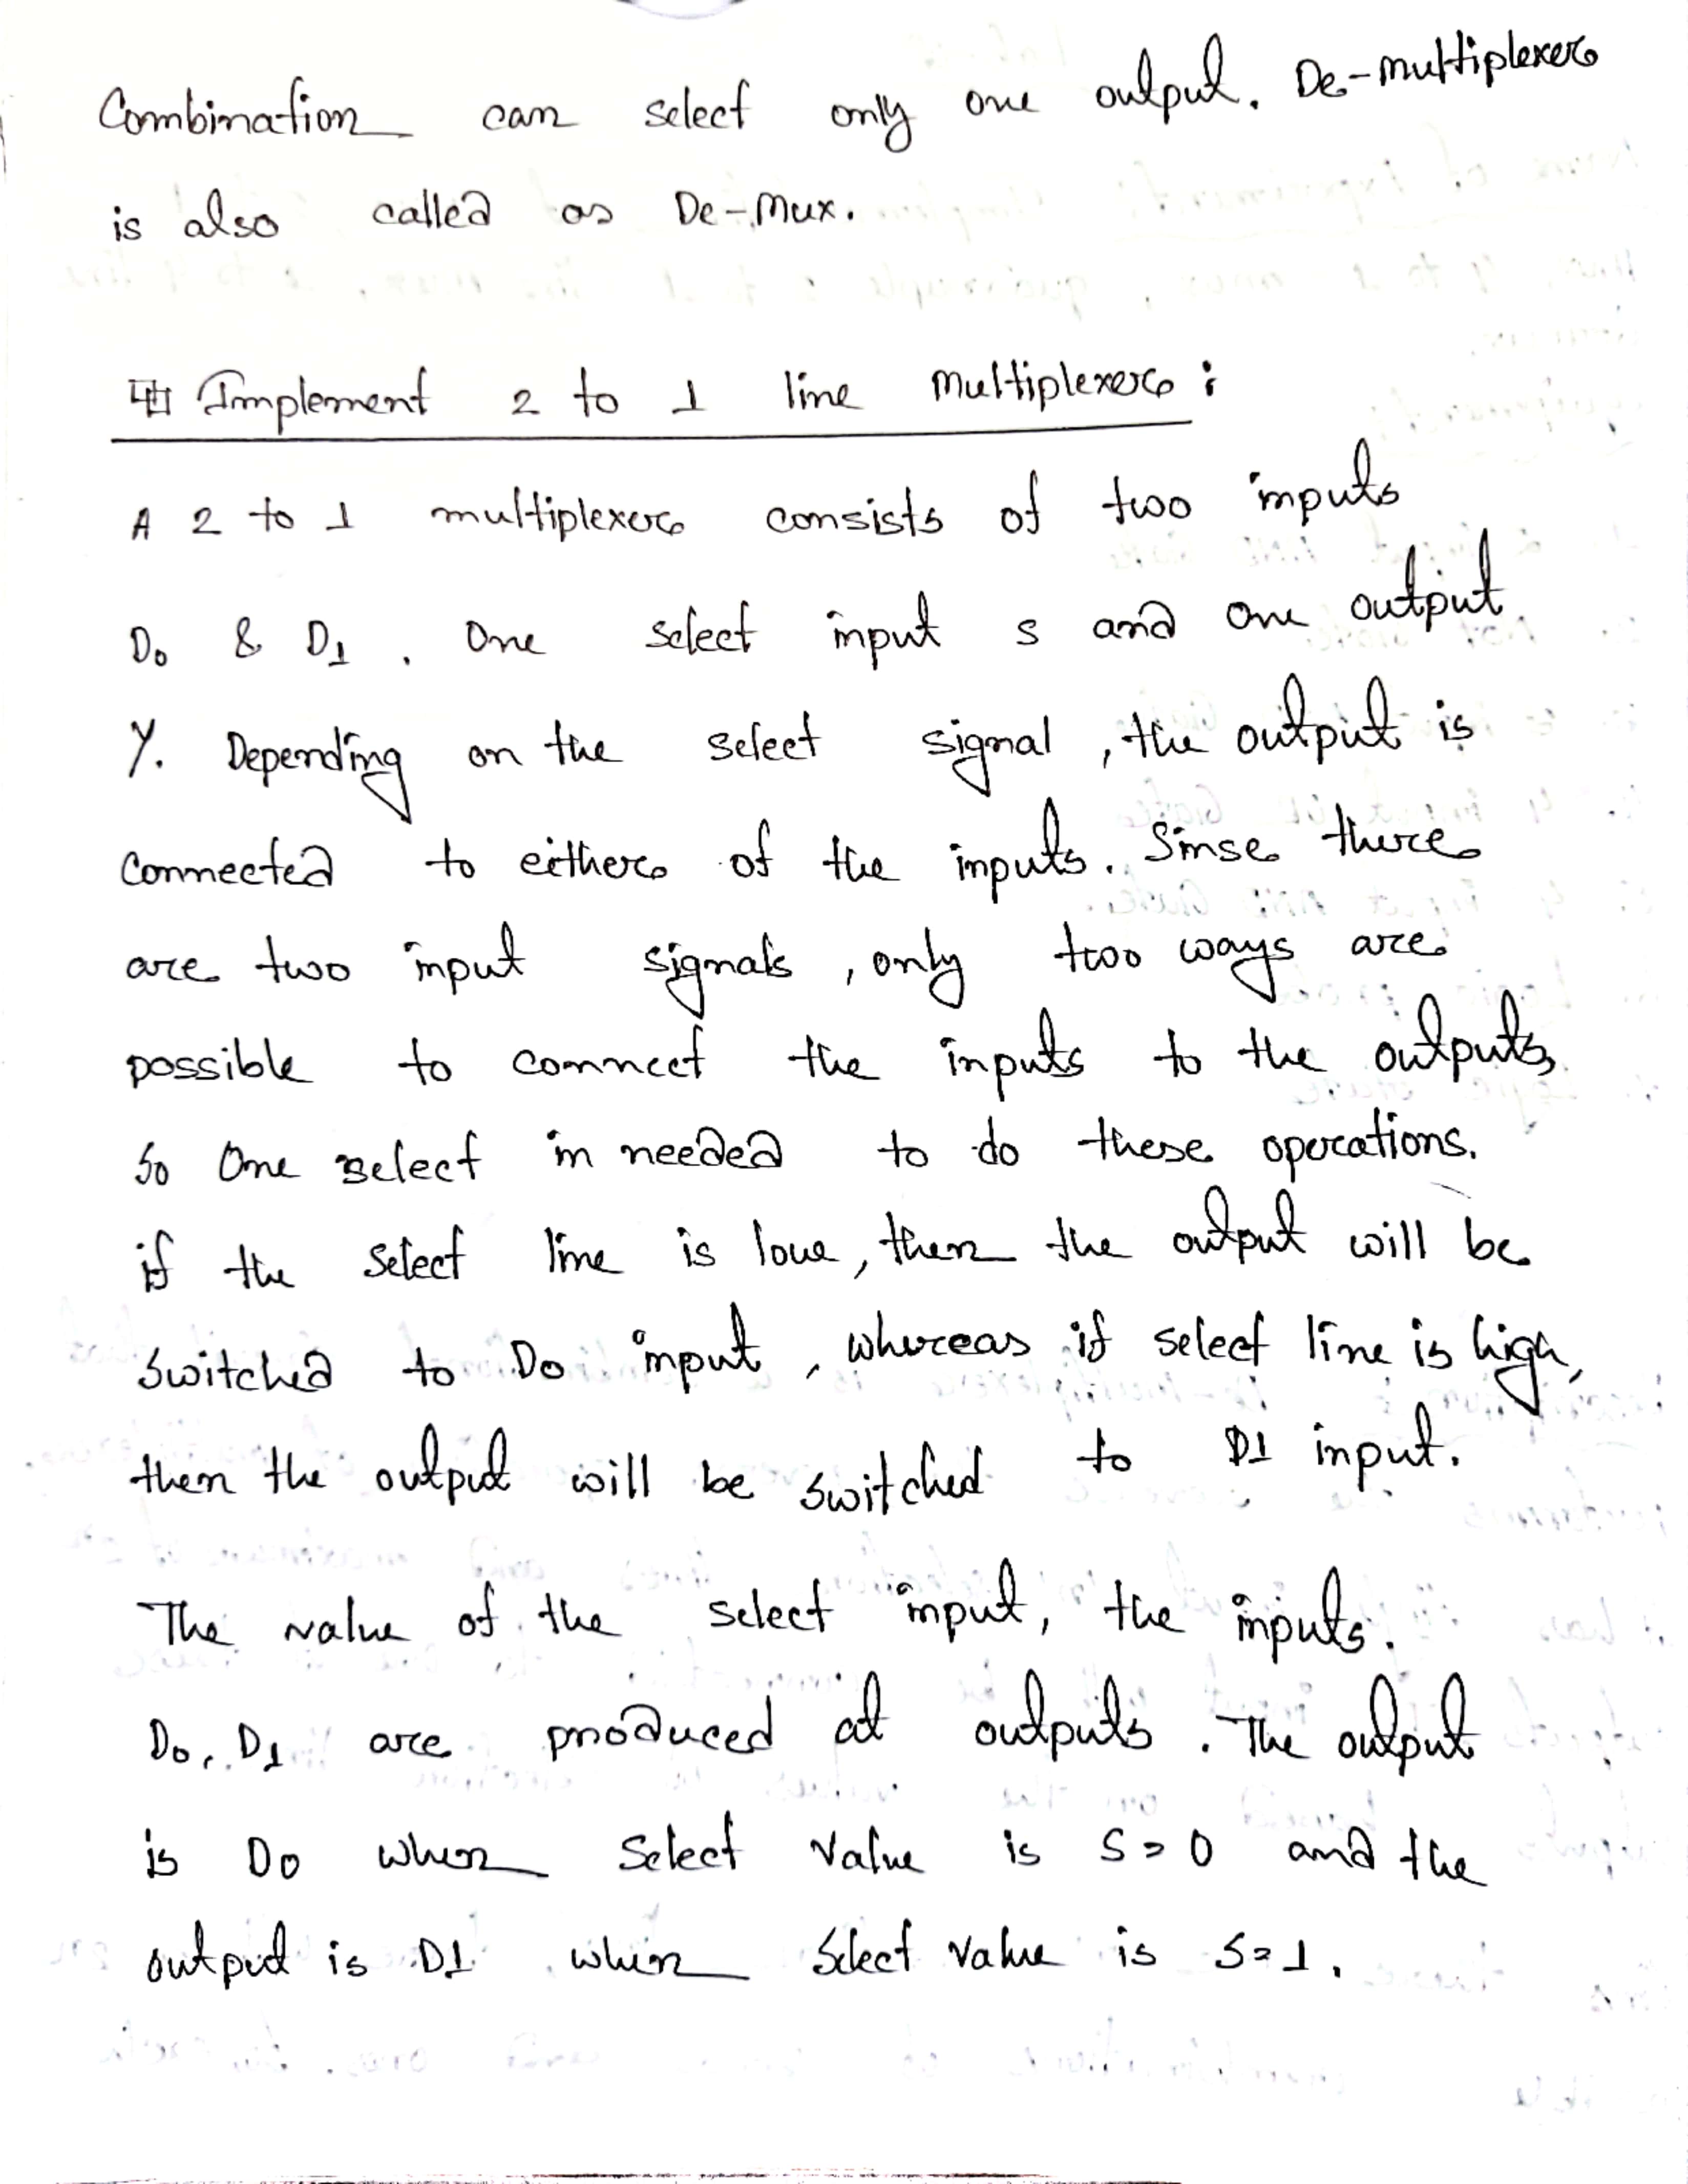 Combination can select only one output. De-multiplexer
is also called as De-Mux.
Implement 2 to 1 line Multiplexer:
A 2 to 1 multiplexer consists of two inputs
D0 & D1. One select input s and one output
Y. Depending on the select signal, the output is
connected to either of the inputs. Sinse there
are two input signals, only two ways are
possible to connect the inputs to the outputs,
so One select in needed to do these operations.
if the select line is lowe, then the output will be
switched to D0 input, whereas if select line is high,
then the output will be switched to D1 input.
The value of the select input, the inputs.
D0, D1 are produced at outputs. The output
is D0 when select value is S=0 and the
output is D1 when select value is S=1.